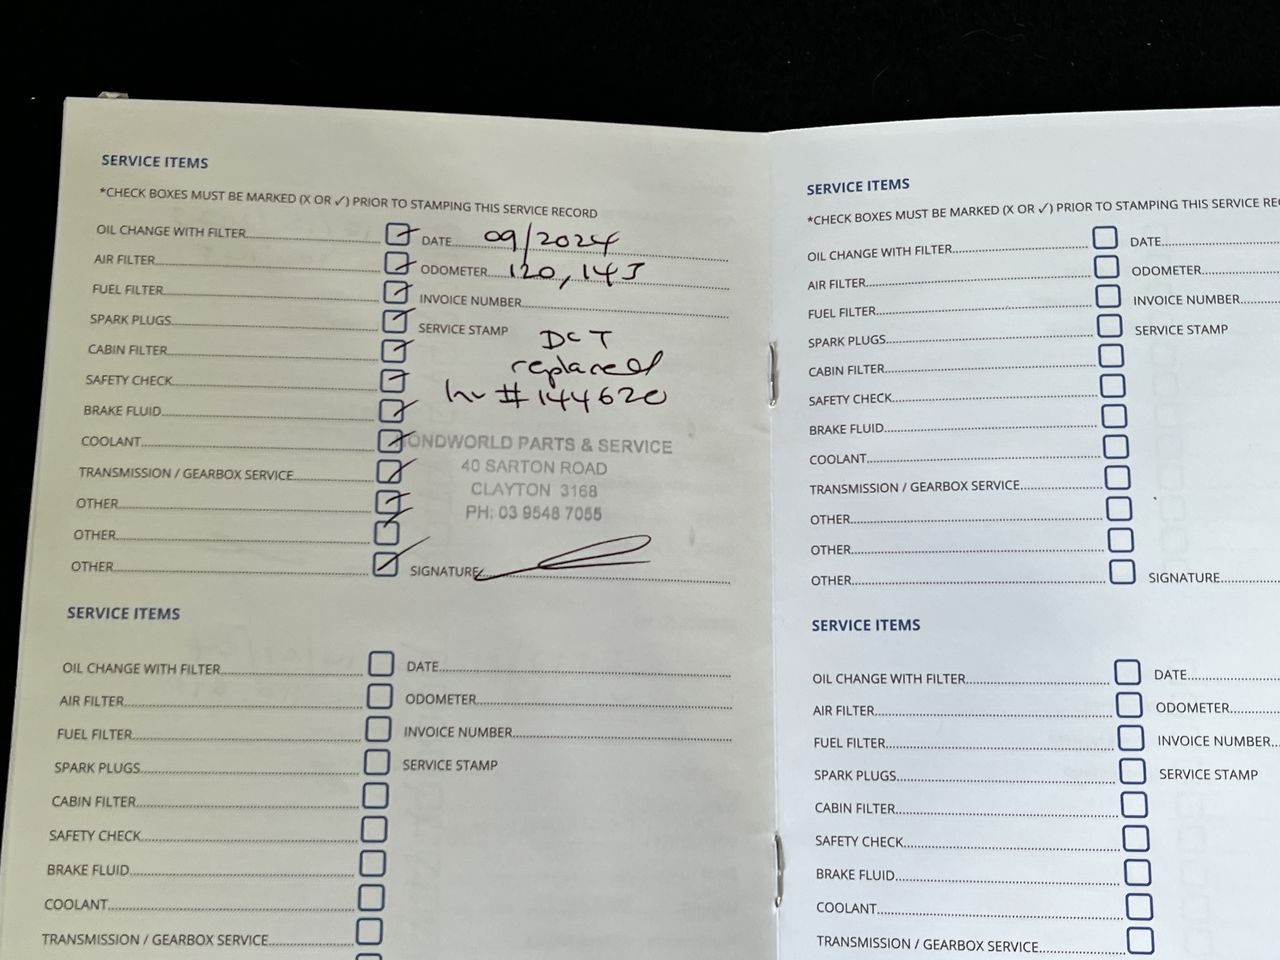 SERVICE ITEMS
*CHECK BOXES MUST BE MARKED (X OR ✓) PRIOR TO STAMPING THIS SERVICE RECORD
OIL CHANGE WITH FILTER
DATE 09/2024
AIR FILTER
ODOMETER 120,143
FUEL FILTER
INVOICE NUMBER
SPARK PLUGS
SERVICE STAMP
DCT
CABIN FILTER
replaced
SAFETY CHECK
Inv #144620
BRAKE FLUID
COOLANT
ONDWORLD PARTS & SERVICE
TRANSMISSION / GEARBOX SERVICE
40 SARTON ROAD
CLAYTON 3168
OTHER
PH: 03 9548 7055
OTHER
OTHER
SIGNATURE
SERVICE ITEMS
OIL CHANGE WITH FILTER
DATE
AIR FILTER
ODOMETER
FUEL FILTER
INVOICE NUMBER
SPARK PLUGS
SERVICE STAMP
CABIN FILTER
SAFETY CHECK
BRAKE FLUID
COOLANT
TRANSMISSION / GEARBOX SERVICE
SERVICE ITEMS
*CHECK BOXES MUST BE MARKED (X OR ✓) PRIOR TO STAMPING THIS SERVICE RE
OIL CHANGE WITH FILTER
DATE
AIR FILTER
ODOMETER
FUEL FILTER
INVOICE NUMBER
SPARK PLUGS
SERVICE STAMP
CABIN FILTER
SAFETY CHECK
BRAKE FLUID
COOLANT
TRANSMISSION / GEARBOX SERVICE
OTHER
OTHER
OTHER
SIGNATURE
SERVICE ITEMS
OIL CHANGE WITH FILTER
DATE
AIR FILTER
ODOMETER
FUEL FILTER
INVOICE NUMBER
SPARK PLUGS
SERVICE STAMP
CABIN FILTER
SAFETY CHECK
BRAKE FLUID
COOLANT
TRANSMISSION / GEARBOX SERVICE